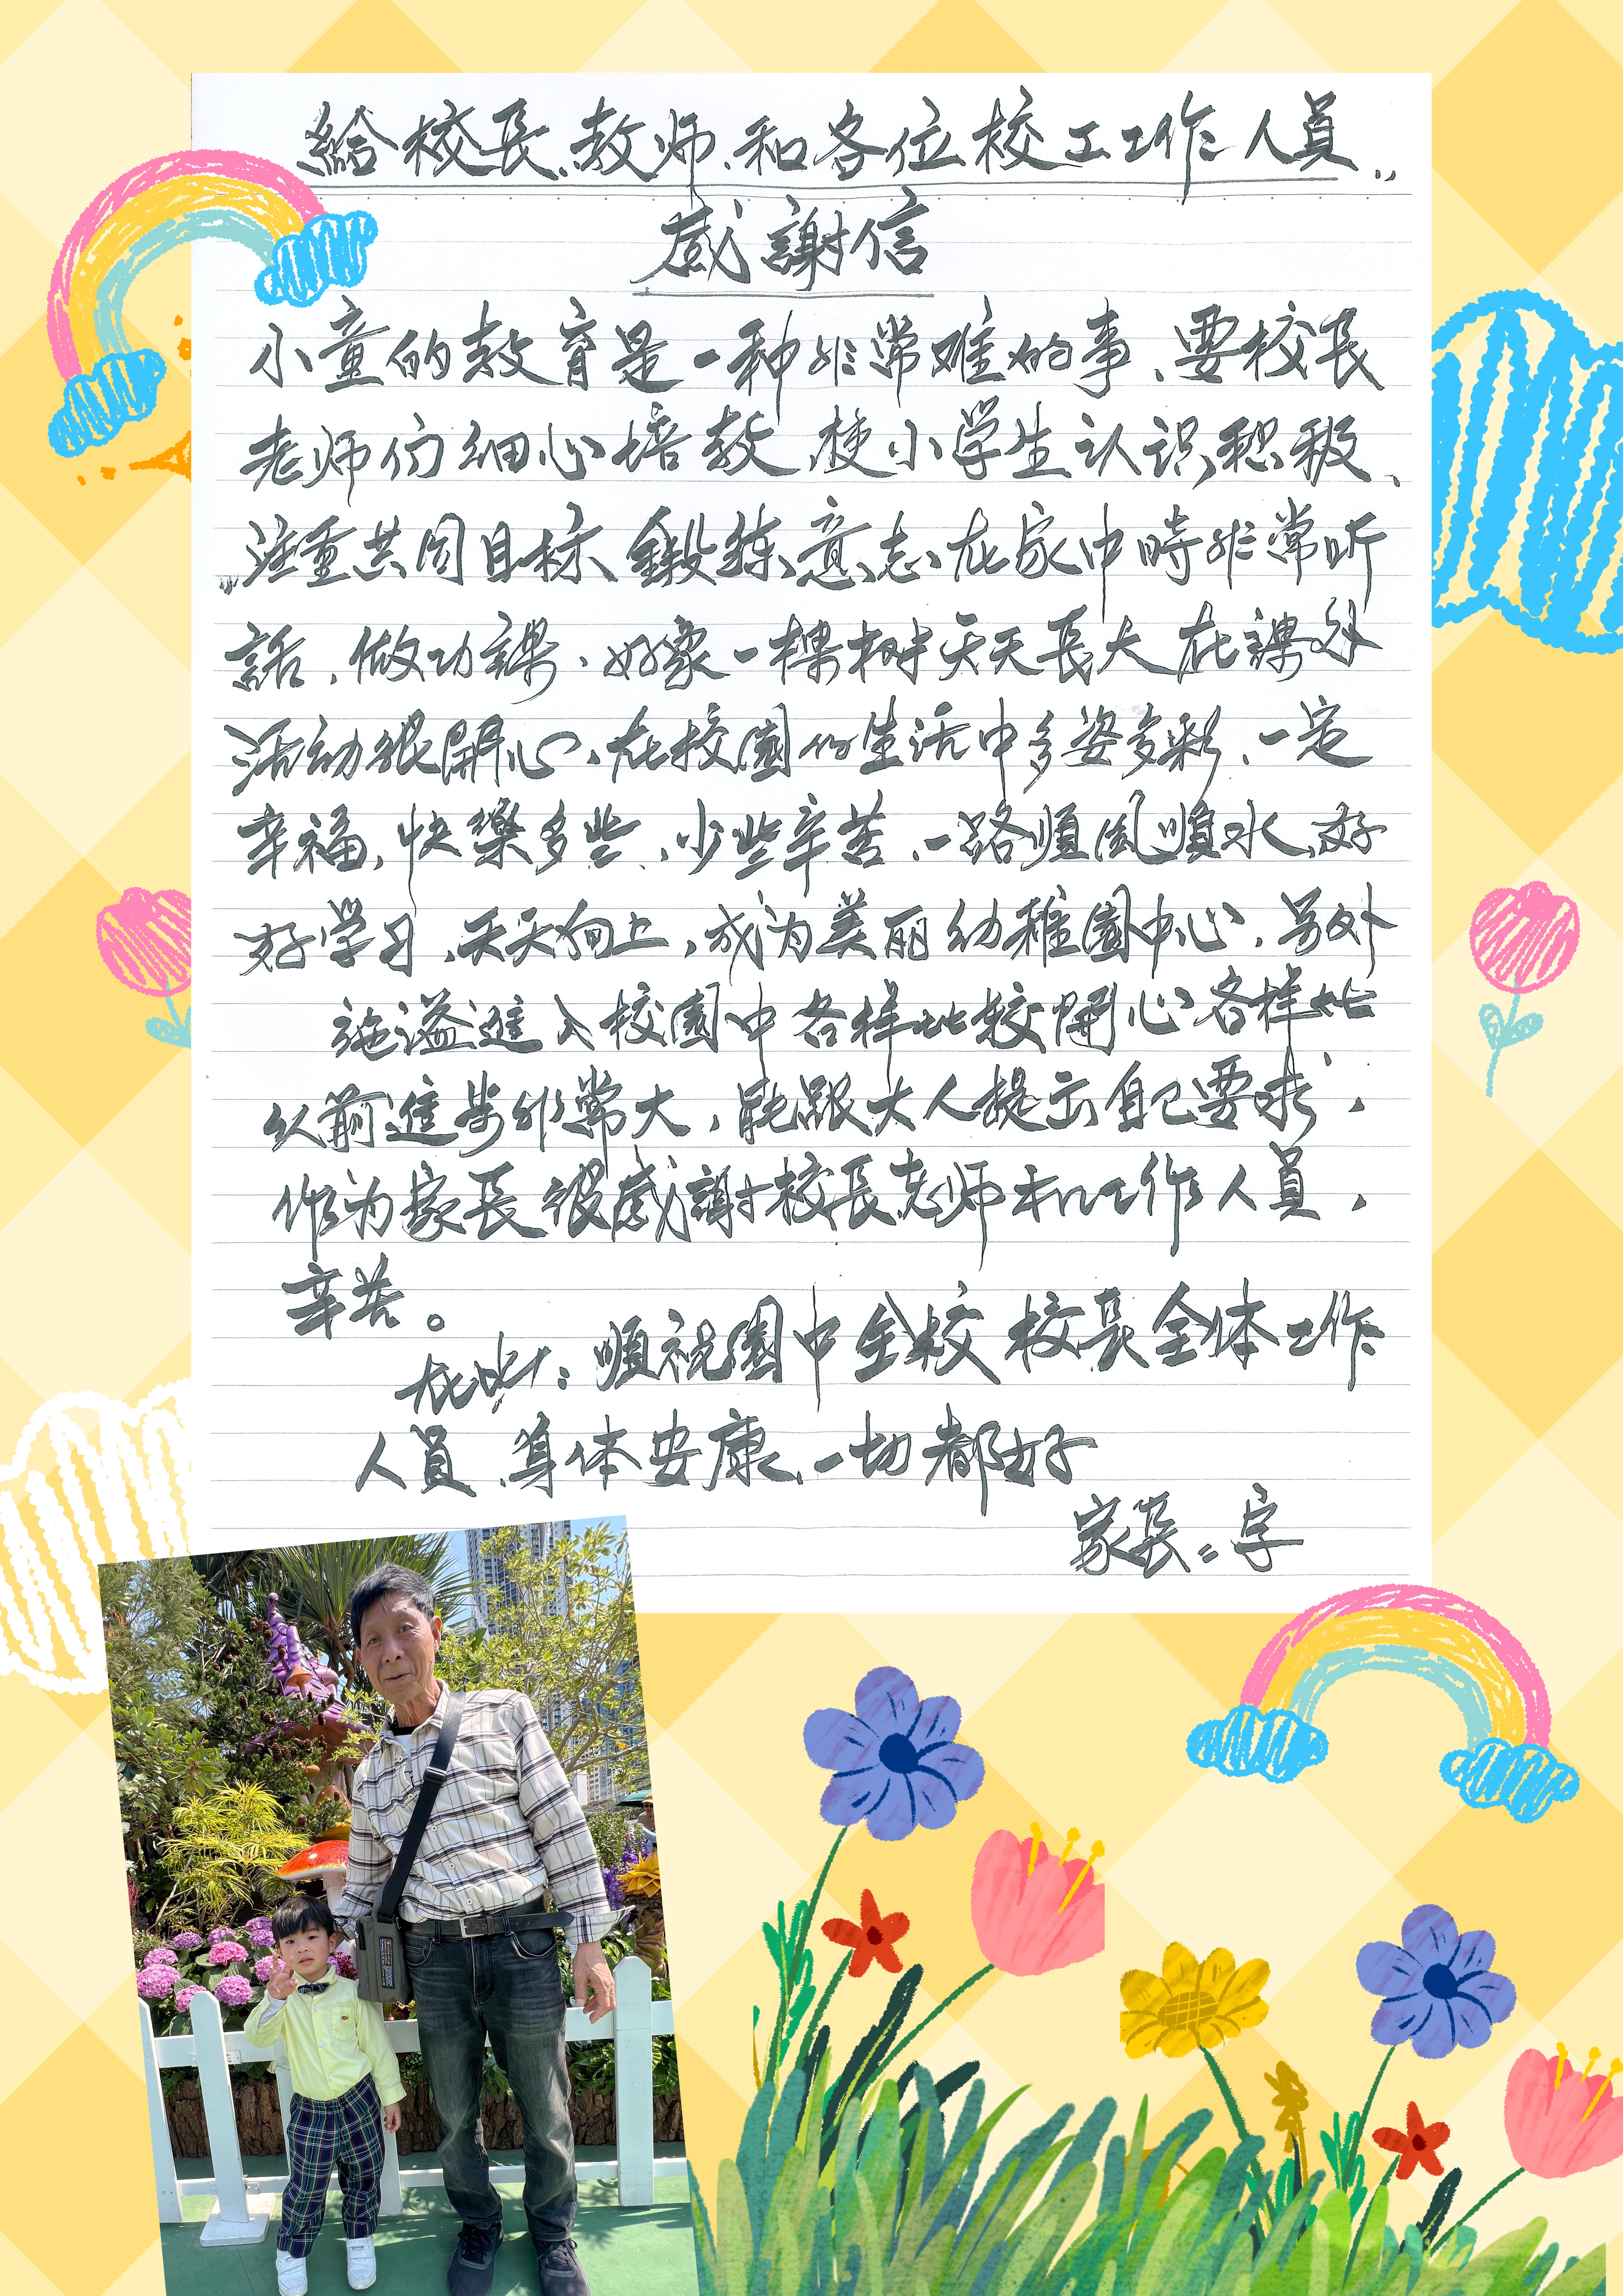 給校長、教师、和各位校工工作人員..
感謝信
小童的教育是一种非常难的事、要校長
老师们细心培教、使小学生认识积极、
注重共同目标、鍛练意志、在家中時非常听
話、做功課、好象一棵树天天長大在課外
活动很開心、在校園的生活中多姿多彩、一定
幸福、快樂多些、少些辛苦、一路順風順水、好
好学习、天天向上，成为美丽幼稚園中心、另外
施溢進入校園中各样比較開心各样比
以前進步非常大，能跟大人提出自己要求，
作为家長很感謝校長老师和工作人員，
辛苦。
在此：順祝園中全校校長全体工作
人員、身体安康、一切都好
家長：字